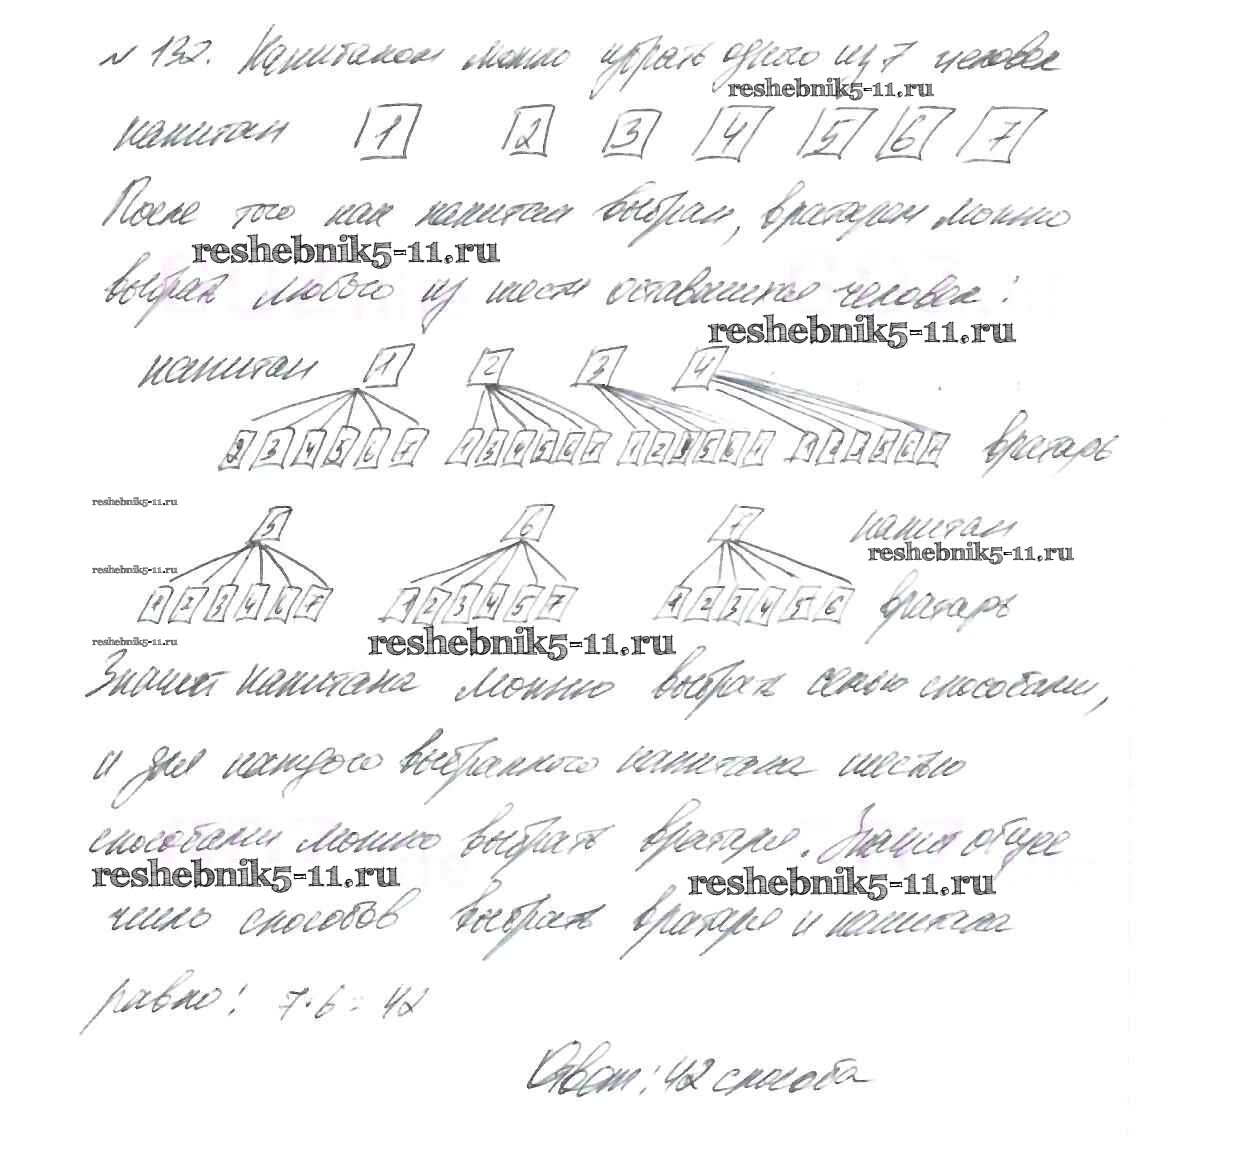 № 132. Капитаном можно убрать одного из 7 человек
reshebnik5-11.ru
капитан 1 2 3 4 5 6 7
После того как капитан выбран, вратарем можно
reshebnik5-11.ru
выбрать любого из шести оставшихся человек:
reshebnik5-11.ru
капитан 1 2 3 4
2 3 4 5 6 7 1 3 4 5 6 7 1 2 4 5 6 7 1 2 3 5 6 7 вратарь
reshebnik5-11.ru
5 6 7 капитан
reshebnik5-11.ru
reshebnik5-11.ru
1 2 3 4 6 7 1 2 3 4 5 7 1 2 3 4 5 6 вратарь
reshebnik5-11.ru
reshebnik5-11.ru
Значит капитана можно выбрать семью способами,
и для каждого выбранного капитана шестью
способами можно выбрать вратаря. Значит общее
reshebnik5-11.ru
reshebnik5-11.ru
число способов выбрать вратаря и капитана
равно: 7·6=42
Ответ: 42 способа